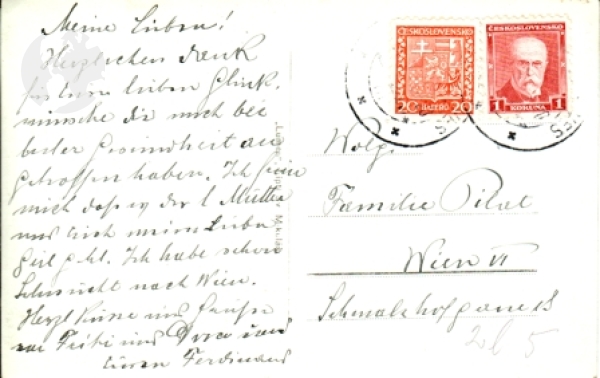 Meine Lieben!
Herzlichen Dank
für Euern lieben Glück.
wünsche die mich bei
bester Gesundheit an
getroffen haben. Ich freue
mich daß es der l. Mutter
und Euch meine Liebe
gut geht. Ich habe schon
Sehnsucht nach Wien.
Herzl Küsse und Grüße
Ferdinand
ČESKOSLOVENSKO
20 HALÉŘŮ 20
ČESKOSLOVENSKO
1 KORUNA 1
Wolg.
Familie Pilat
Wien VI
Schmalzhofgasse 18
26 5